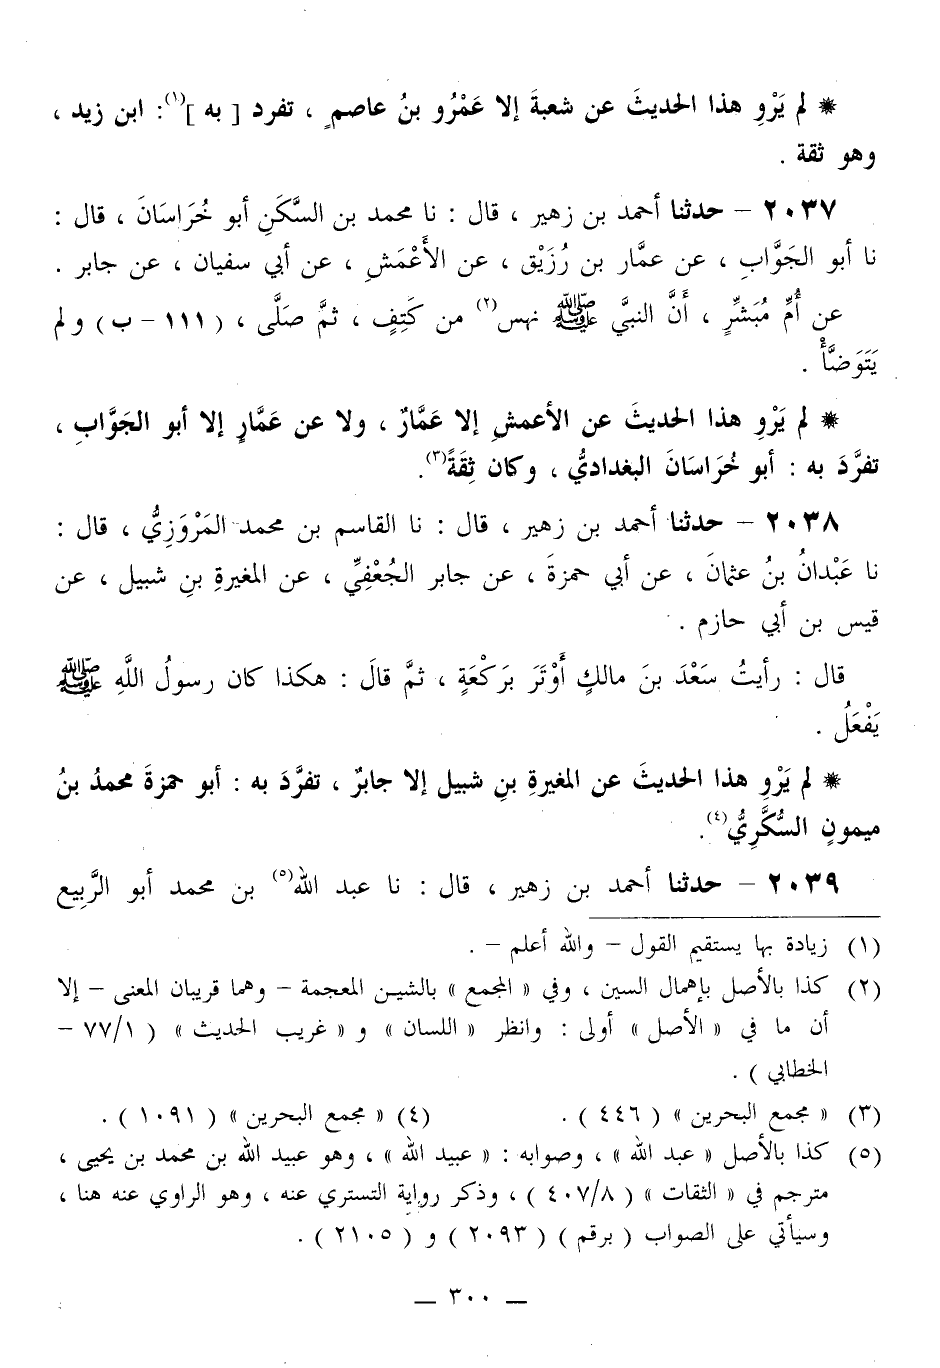 * لم يَرْوِ هذا الحديثَ عن شعبةَ إلا عَمْرُو بنُ عاصمٍ ، تفرد [ به ](١): ابن زيد ،
وهو ثقة .
٢٠٣٧ - حدثنا أحمد بن زهير ، قال : نا محمد بن السَّكَنِ أبو خُرَاسَانَ ، قال :
نا أبو الجَوَّابِ ، عن عمَّار بن رُزَيْق ، عن الأَعْمَشِ ، عن أبي سفيان ، عن جابر .
عن أُمِّ مُبَشِّرٍ ، أَنَّ النبيَّ ﷺ نهس(٢) من كَتِفٍ ، ثمَّ صَلَّى ، ( ١١١ - ب ) ولم
يَتَوَضَّأْ .
* لم يَرْوِ هذا الحديثَ عن الأعمشِ إلا عَمَّارٌ ، ولا عن عَمَّارٍ إلا أبو الجَوَّابِ ،
تفرَّدَ به : أبو خُرَاسَانَ البغداديُّ ، وكان ثِقَةً(٣).
٢٠٣٨ - حدثنا أحمد بن زهير ، قال : نا القاسم بن محمد المَرْوَزِيُّ ، قال :
نا عَبْدانُ بنُ عثمانَ ، عن أبي حمزةَ ، عن جابر الجُعْفِيِّ ، عن المغيرةِ بنِ شبيل ، عن
قيس بن أبي حازم .
قال : رأيتُ سَعْدَ بنَ مالكٍ أَوْتَرَ بَرَكْعَةٍ ، ثمَّ قالَ : هكذا كان رسولُ اللَّهِ ﷺ
يَفْعَلُ .
* لم يَرْوِ هذا الحديثَ عن المغيرةِ بنِ شبيل إلا جابرٌ ، تفرَّدَ به : أبو حمزةَ محمدُ بنُ
ميمونٍ السُّكَّرِيُّ(٤).
٢٠٣٩ - حدثنا أحمد بن زهير ، قال : نا عبد الله(٥) بن محمد أبو الرَّبِيع
(١) زيادة بها يستقيم القول - والله أعلم - .
(٢) كذا بالأصل بإهمال السين ، وفي « المجمع » بالشين المعجمة - وهما قريبان المعنى - إلا
أن ما في « الأصل » أولى : وانظر « اللسان » و « غريب الحديث » ( ٧٧/١ -
الخطابي ) .
(٣) « مجمع البحرين » ( ٤٤٦ ) . (٤) « مجمع البحرين » ( ١٠٩١ ) .
(٥) كذا بالأصل « عبد الله » ، وصوابه : « عبيد الله » ، وهو عبيد الله بن محمد بن يحيى ،
مترجم في « الثقات » ( ٤٠٧/٨ ) ، وذكر رواية التستري عنه ، وهو الراوي عنه هنا ،
وسيأتي على الصواب ( برقم ) ( ٢٠٩٣ ) و ( ٢١٠٥ ) .
— ٣٠٠ —